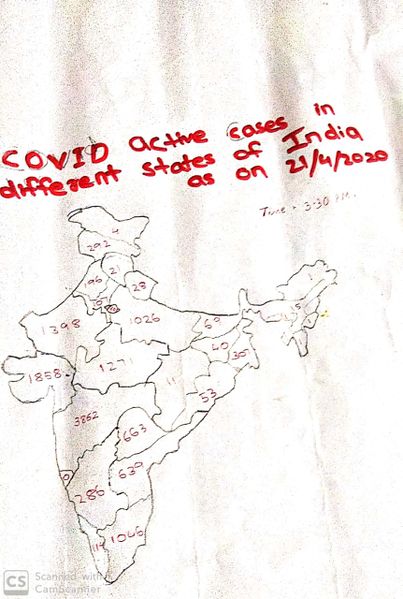 COVID active cases in
different states of India
as on 21/4/2020
Time : 3:30 P.M.
4
292
21
196
28
1398
1026
60
1858
1271
40
307
11
53
3862
663
639
0
286
114
1046
CS Scanned with
CamScanner